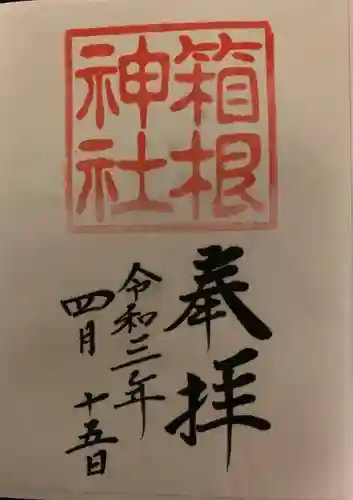 箱根
神社
奉拝
令和三年
四月十五日